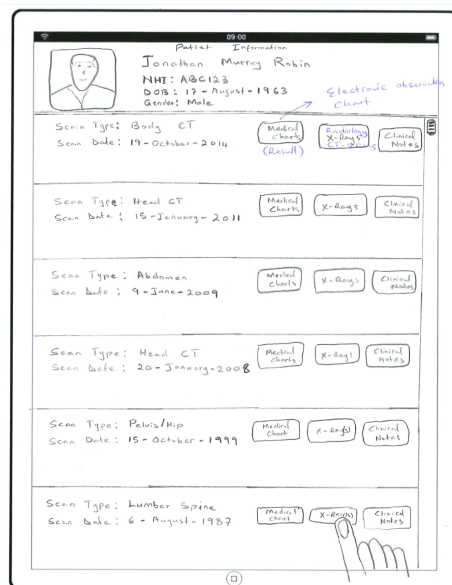 09:00
Patiet Information
Jonathon Murray Robin
NHI: ABC123
DOB: 17 - August - 1963
Gender: Male
Electronic observation
Chart
Scan Type: Body CT
Scan Date: 19-October-2014
Medical
Charts
(Result)
Radiology
X-Rays
Clinical
Notes
Scan Type: Head CT
Scan Date: 15-January-2011
Medical
Charts
X-Rays
Clinical
Notes
Scan Type: Abdomen
Scan Date: 9-June-2009
Medical
Charts
X-Rays
Clinical
Notes
Scan Type: Head CT
Scan Date: 20-January-2008
Medical
Charts
X-Rays
Clinical
Notes
Scan Type: Pelvis/Hip
Scan Date: 15-October-1999
Medical
Chart
X-Ray(s)
Clinical
Notes
Scan Type: Lumbar Spine
Scan Date: 6-August-1987
Medical
Chart
X-Ray(s)
Clinical
Notes